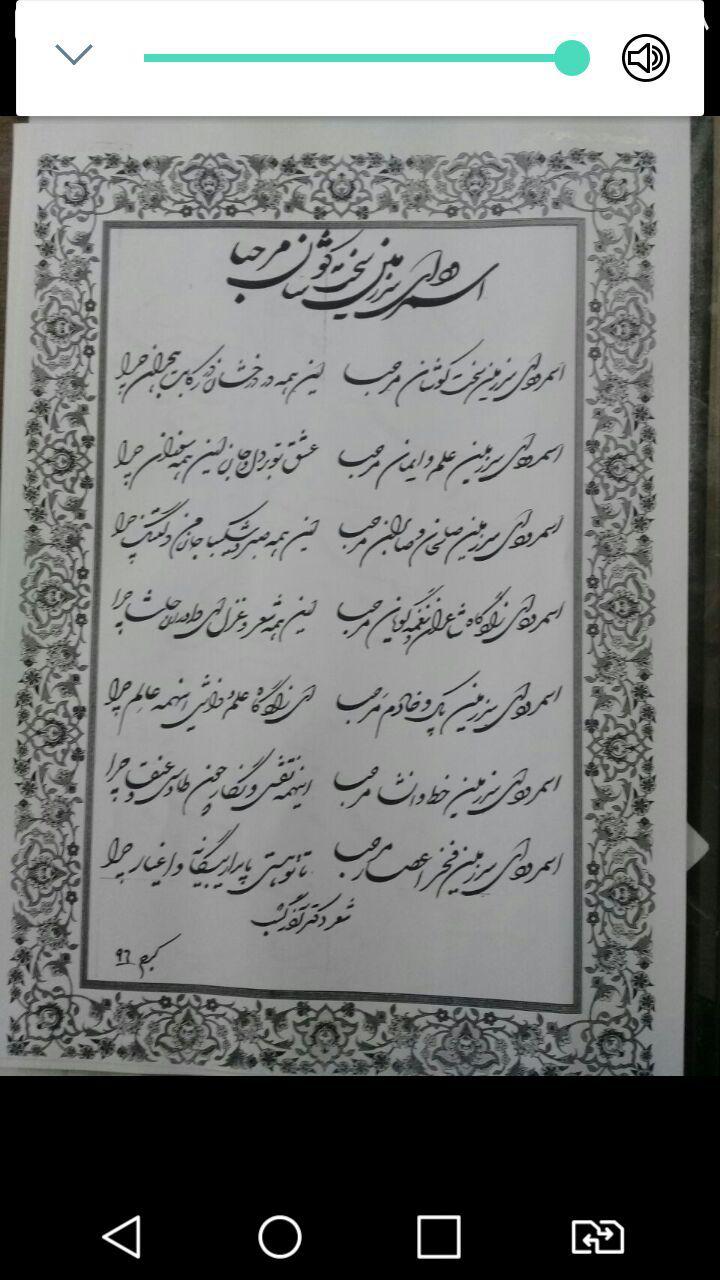 اسمرود ای سرزمین سخت کوشان مرحبا
اسمرود ای سرزمین سخت کوشان مرحبا این همه در درخشان در رکابت چرا
اسمرود ای سرزمین علم و ایمان مرحبا عشق تو در دل و جان این همه چرا
اسمرود ای سرزمین صلحان و صابران مرحبا این همه صبر و شکیبا جان من دلتنگ چرا
اسمرود ای زادگاه شاعران نغمه گویان مرحبا این همه شعر و غزل ای چرا
اسمرود ای سرزمین پاک و خادم مرحبا ای زادگاه علم و دانش اینهمه عالم چرا
اسمرود ای سرزمین خط و انشا مرحبا اینهمه نقش و نگار چون طاوس و عنقا چرا
اسمرود ای سرزمین فخر اعصار مرحبا تا تو هستی پا برار بیگانه و اغیار چرا
شعر دکتر آذرگشب
۹۶